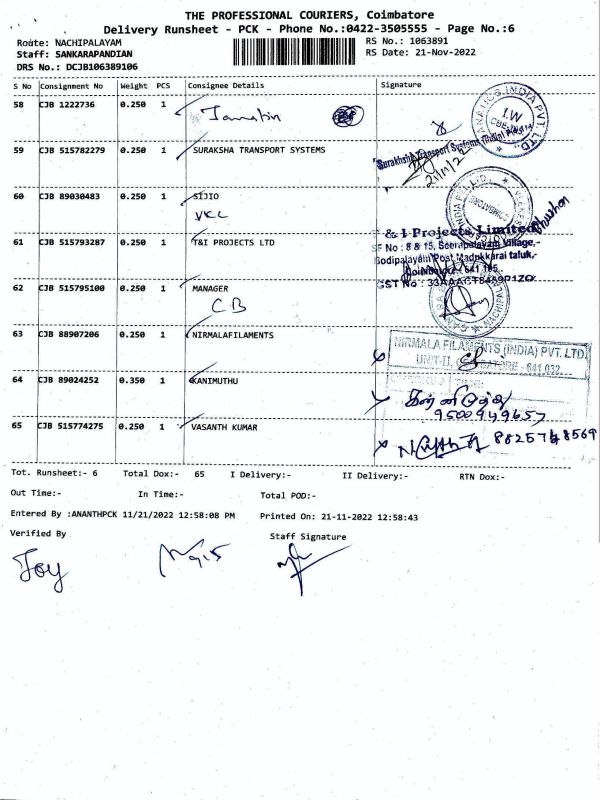 THE PROFESSIONAL COURIERS, Coimbatore
Delivery Runsheet - PCK - Phone No.:0422-3505555 - Page No.:6
Route: NACHIPALAYAM
RS No.: 1063891
Staff: SANKARAPANDIAN
RS Date: 21-Nov-2022
DRS No.: DCJB106389106
S No Consignment No Weight PCS Consignee Details Signature
58 CJB 1222736 0.250 1
59 CJB 515782279 0.250 1 SURAKSHA TRANSPORT SYSTEMS
Suraksha Transport Systems (India)
21/11/22
60 CJB 89030483 0.250 1 SIJIO
VKC
61 CJB 515793287 0.250 1 T&I PROJECTS LTD
& I Projects Limited
SF No : 8 & 15, Seerapalayam Village,
Bodipalayam Post Madukkarai taluk,
Coimbatore - 641 105.
62 CJB 515795100 0.250 1 MANAGER
CB
63 CJB 88907206 0.250 1 NIRMALAFILAMENTS
NIRMALA FILAMENTS (INDIA) PVT. LTD.
UNIT-II, COIMBATORE - 641 032.
64 CJB 89024252 0.350 1 KANIMUTHU
9500949657
65 CJB 515774275 0.250 1 VASANTH KUMAR
8825748569
Tot. Runsheet:- 6 Total Dox:- 65 I Delivery:- II Delivery:- RTN Dox:-
Out Time:- In Time:- Total POD:-
Entered By :ANANTHPCK 11/21/2022 12:58:08 PM Printed On: 21-11-2022 12:58:43
Verified By Staff Signature
Joy